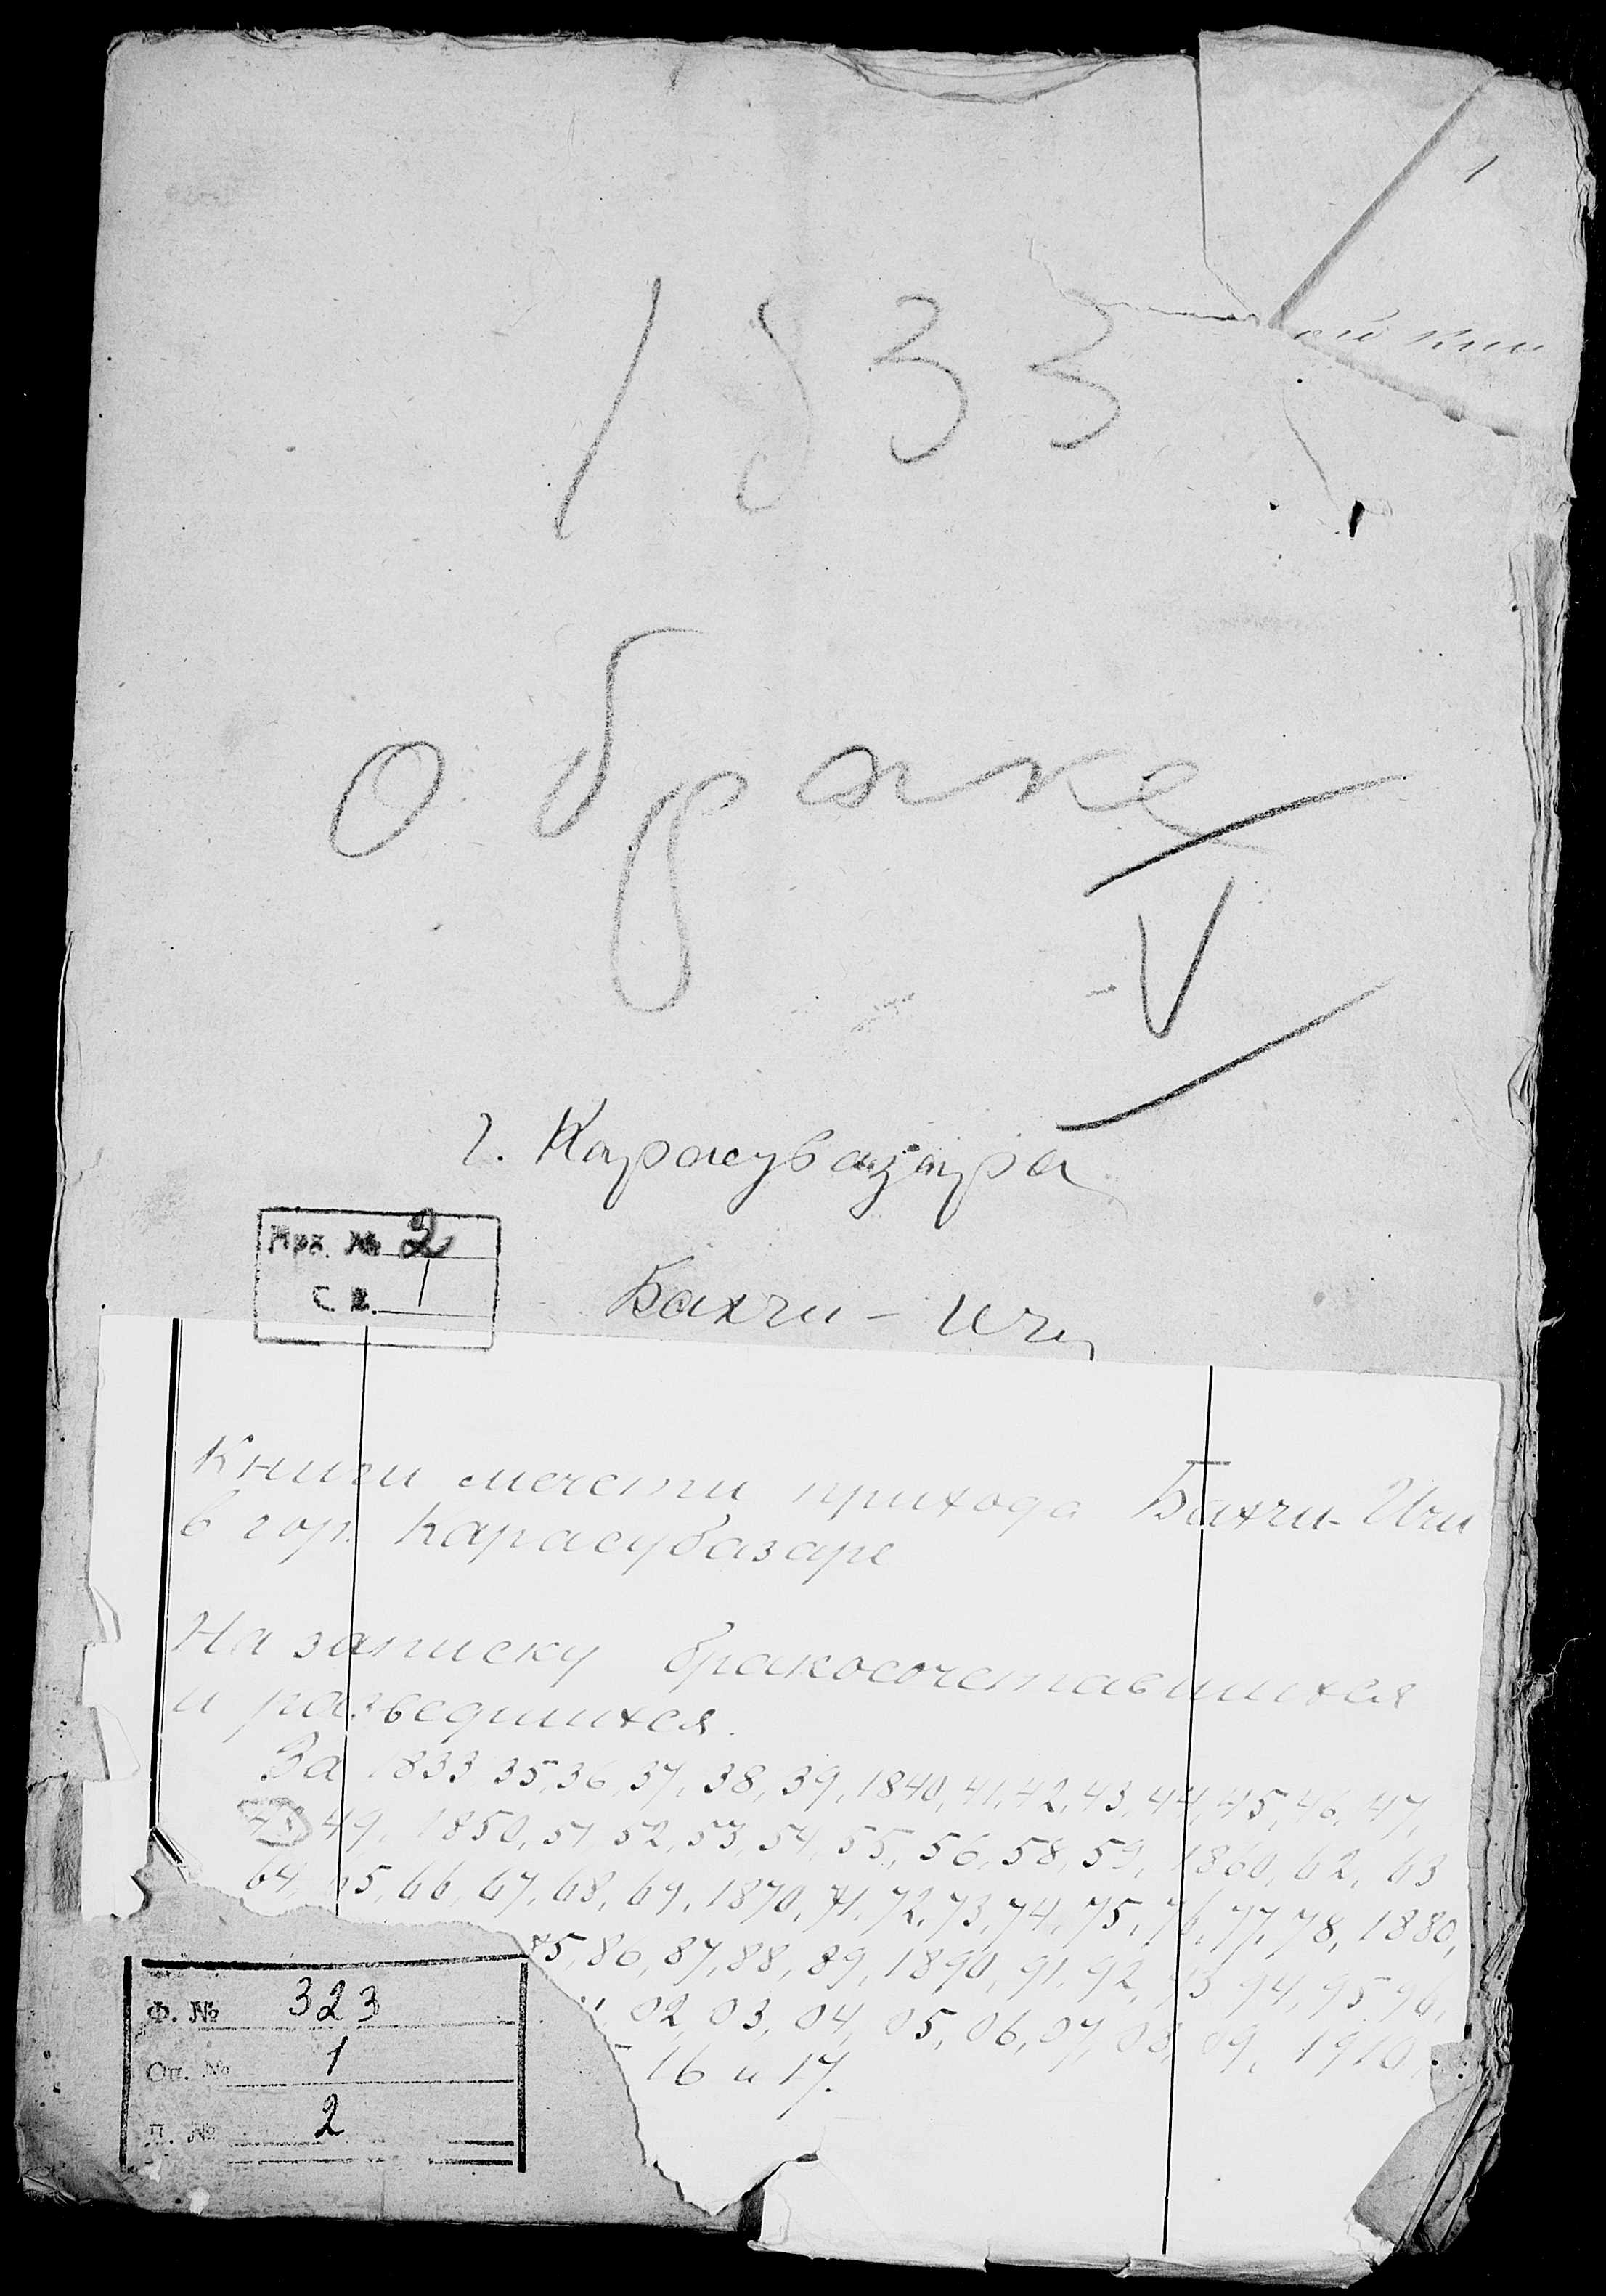 1
1833
о браке
V
г. Карасубазара
Арх. № 2
Св. 1
Бахчи-Ичи
Книги мечети прихода Бахчи-Ичи
в гор. Карасубазаре
На записку бракосочетавшихся
и разведшихся.
За 1833 35, 36, 37, 38, 39, 1840, 41, 42, 43, 44, 45, 46, 47,
49, 1850, 51 52, 53, 54, 55, 56, 58, 59, 1860, 62, 63
64, 65, 66, 67, 68, 69, 1870, 71, 72, 73, 74, 75, 76, 77, 78, 1880,
85, 86, 87, 88, 89, 1890, 91, 92, 93 94, 95 96,
02, 03, 04, 05, 06, 07, 08, 09, 1910,
16 и 17.
Ф. № 323
Оп. № 1
Д. № 2